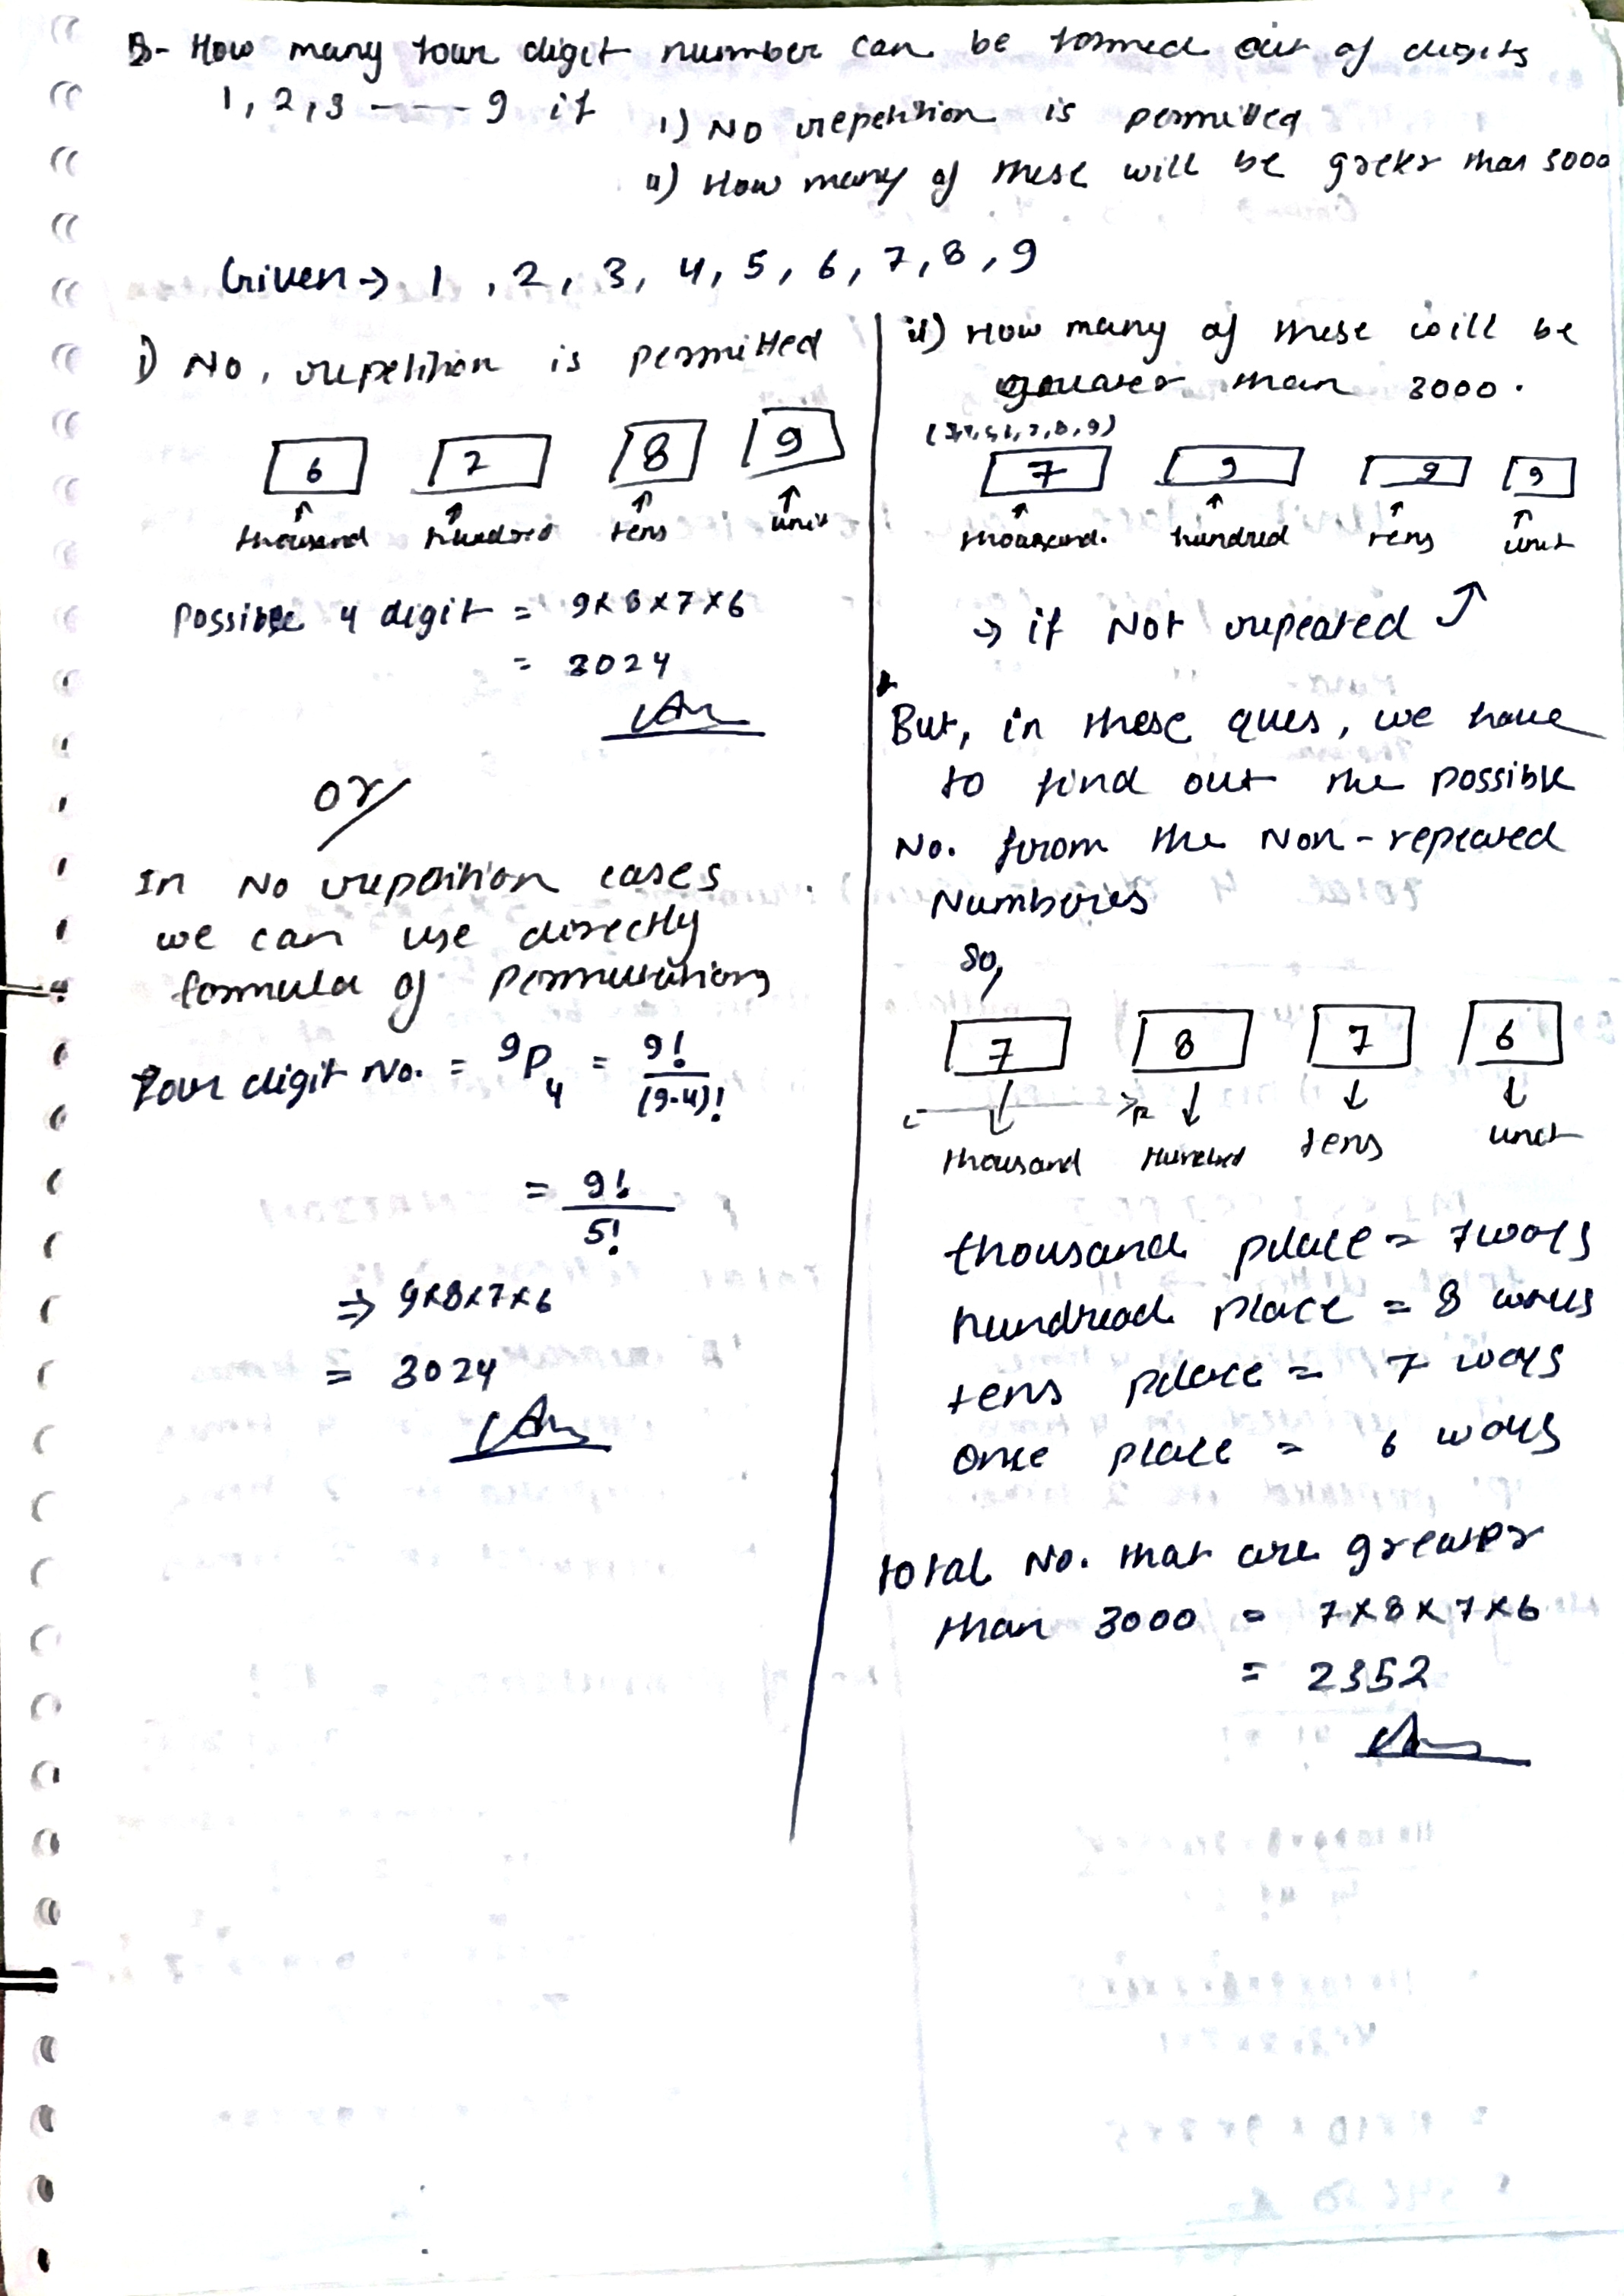 Q- How many four digit number can be formed out of digits
1, 2, 3 ------ 9 if
i) No repetition is permitted
ii) How many of these will be greter than 3000
Given → 1, 2, 3, 4, 5, 6, 7, 8, 9
i) No, repetition is permitted
6 7 8 9
thousand hundred tens unit
Possible 4 digit = 9×8×7×6
= 3024
Ans
or
In No repetition cases
we can use directly
formula of permutations
Four digit No. = ⁹P₄ = 9!/(9-4)!
= 9!/5!
⇒ 9×8×7×6
= 3024
Ans
ii) How many of these will be
greater than 3000.
(3,4,5,6,7,8,9)
7 9 9 9
thousand. hundred tens unit
→ if Not repeated
But, in these ques, we have
to find out the possible
No. from the Non-repeated
Numberies
So,
7 8 7 6
thousand Hundred tens unit
thousand place = 7 ways
hundread place = 8 ways
tens place = 7 ways
once place = 6 ways
total No. that are greater
than 3000 = 7×8×7×6
= 2352
Ans